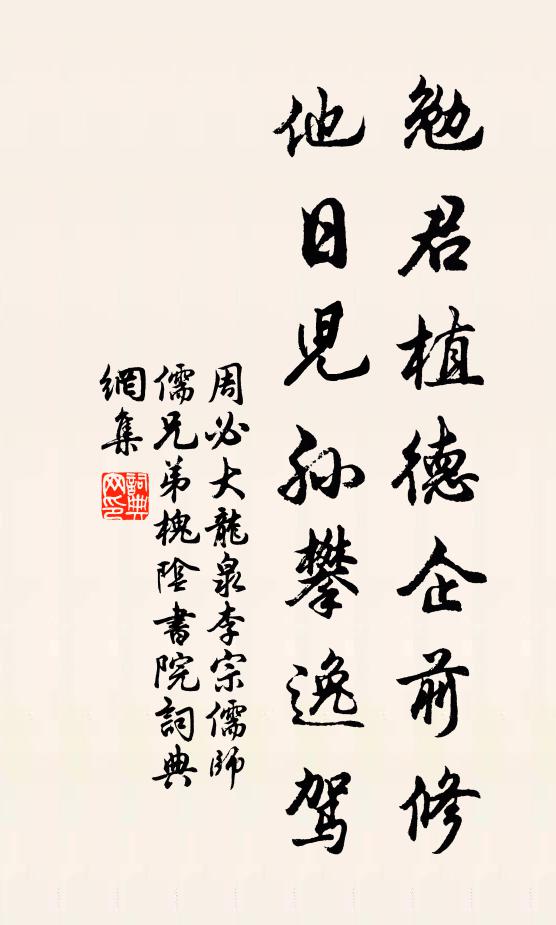 勉君植德企前修
他日兒孫攀逸駕
周必大龍泉李宗儒師
儒兄弟槐陰書院詞典
網集
詞典
网印